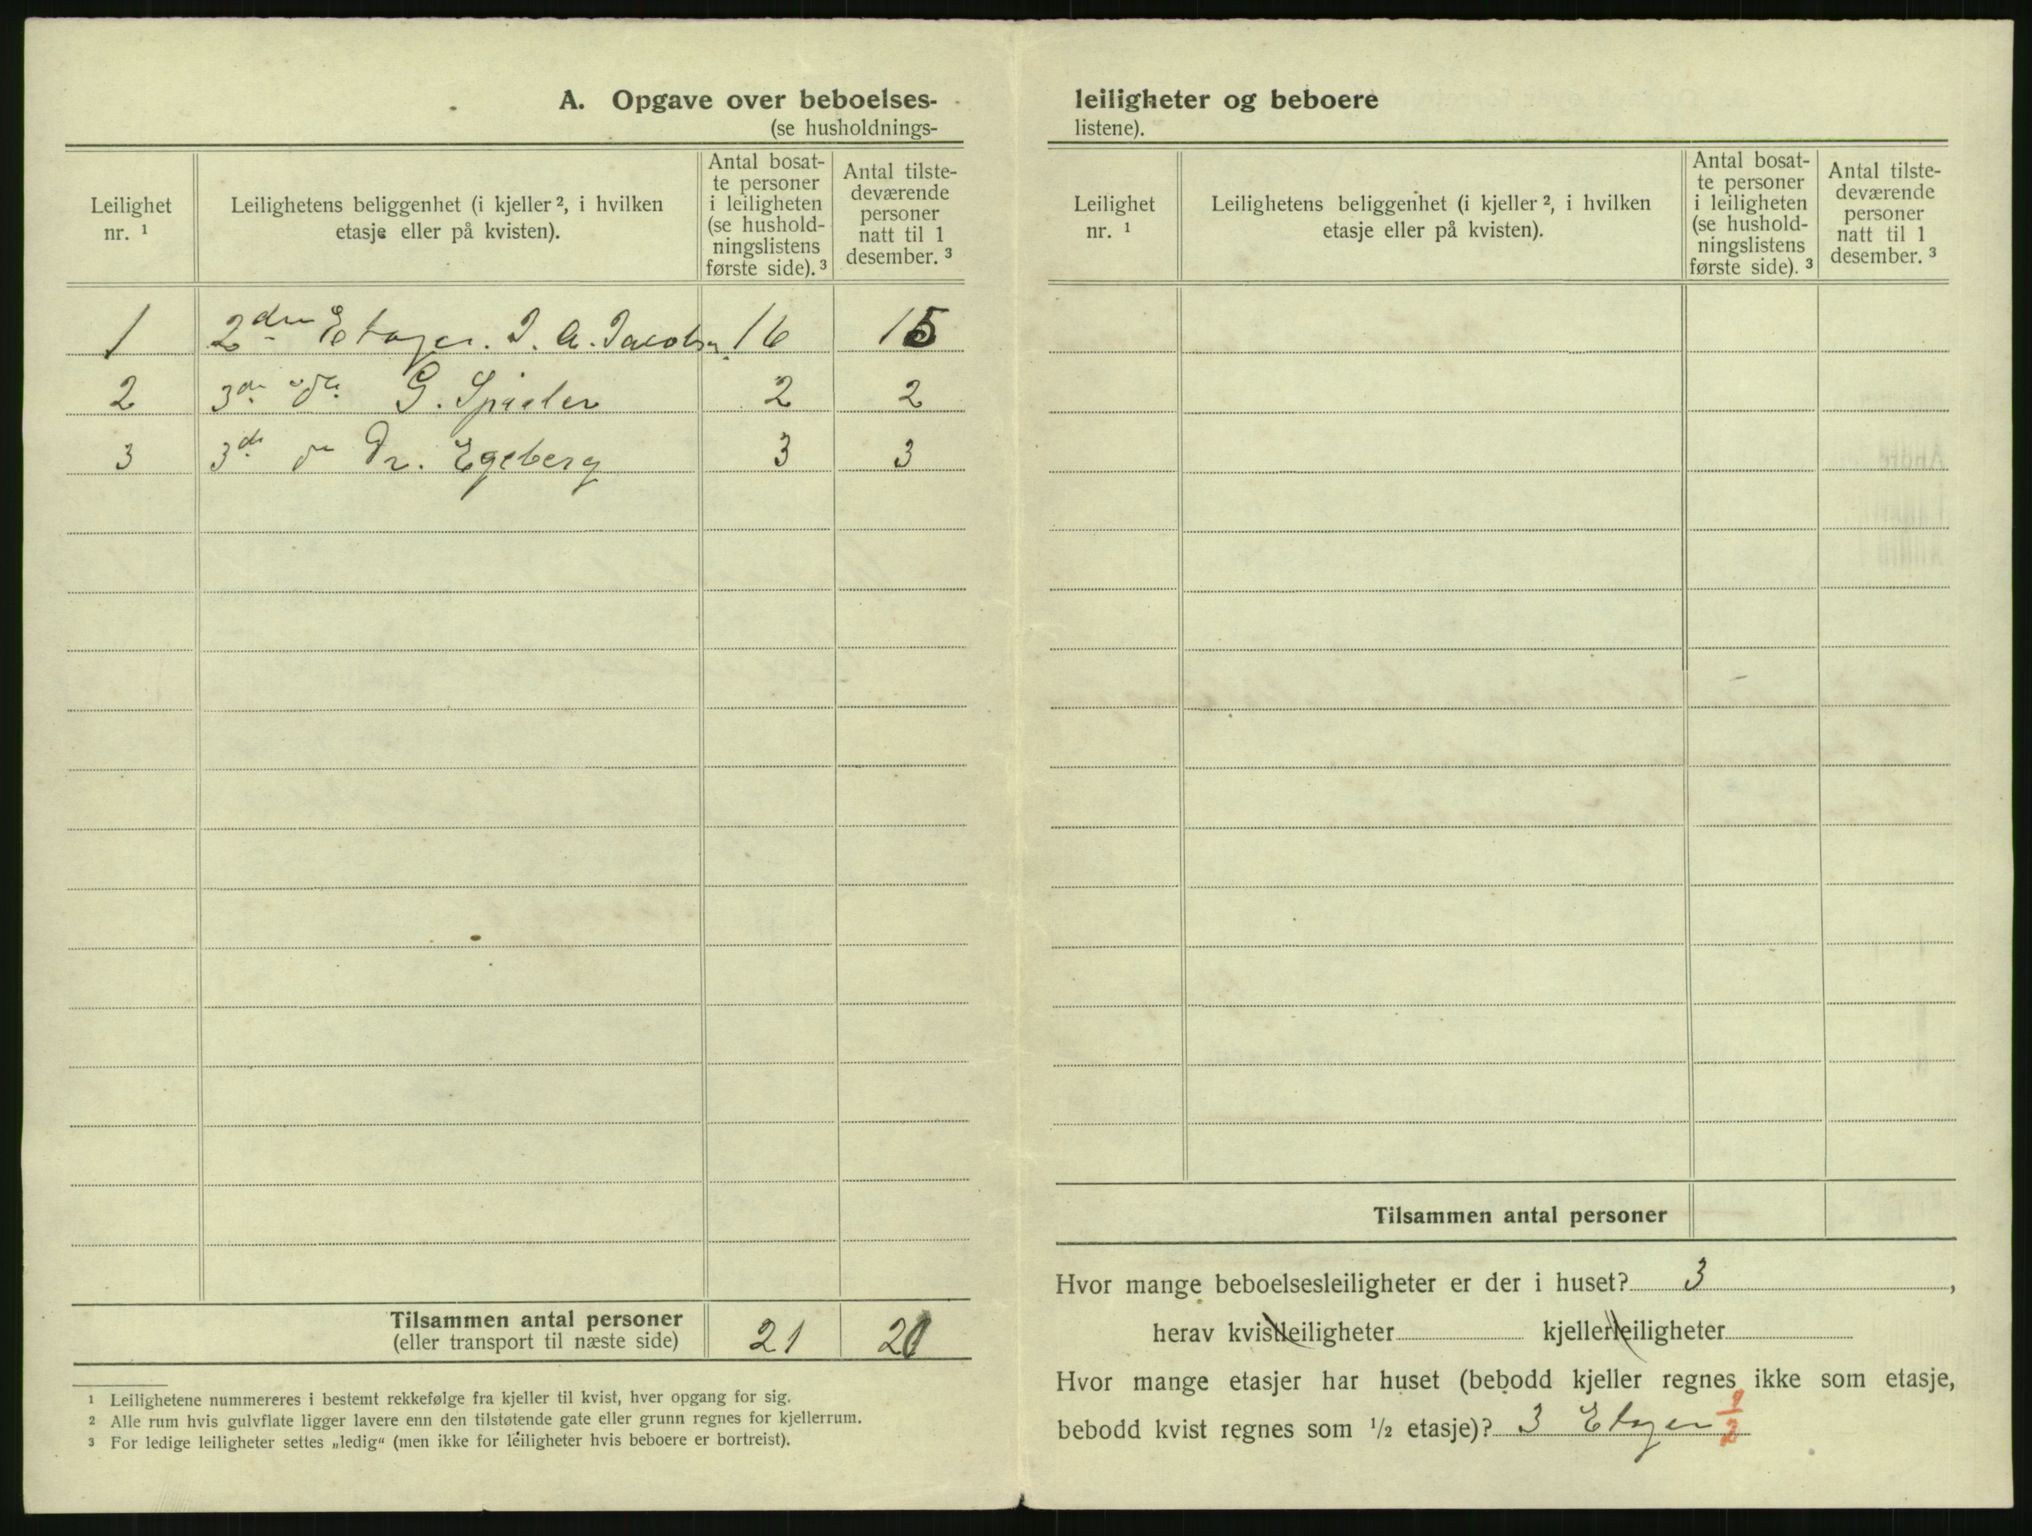 A. Opgave over beboelses-
(se husholdnings-
Leilighet nr. ¹
Leilighetens beliggenhet (i kjeller ², i hvilken etasje eller på kvisten).
Antal bosat-
te personer
i leiligheten
(se hushold-
ningslistens
første side). ³
Antal tilste-
deværende
personer
natt til 1
desember. ³
1 2den Etager. J. A. Jacobsen 16 15
2 3de do G. Spieler 2 2
3 3de do Dr. Egeberg 3 3
Tilsammen antal personer 21 20
(eller transport til næste side)
¹ Leilighetene nummereres i bestemt rekkefølge fra kjeller til kvist, hver opgang for sig.
² Alle rum hvis gulvflate ligger lavere enn den tilstøtende gate eller grunn regnes for kjellerrum.
³ For ledige leiligheter settes „ledig“ (men ikke for leiligheter hvis beboere er bortreist).
leiligheter og beboere
listene).
Leilighet nr. ¹
Leilighetens beliggenhet (i kjeller ², i hvilken etasje eller på kvisten).
Antal bosat-
te personer
i leiligheten
(se hushold-
ningslistens
første side). ³
Antal tilste-
deværende
personer
natt til 1
desember. ³
Tilsammen antal personer
Hvor mange beboelsesleiligheter er der i huset? 3,
herav kvistleiligheter kjellerleiligheter
Hvor mange etasjer har huset (bebodd kjeller regnes ikke som etasje,
bebodd kvist regnes som ½ etasje)? 3 Etager ½